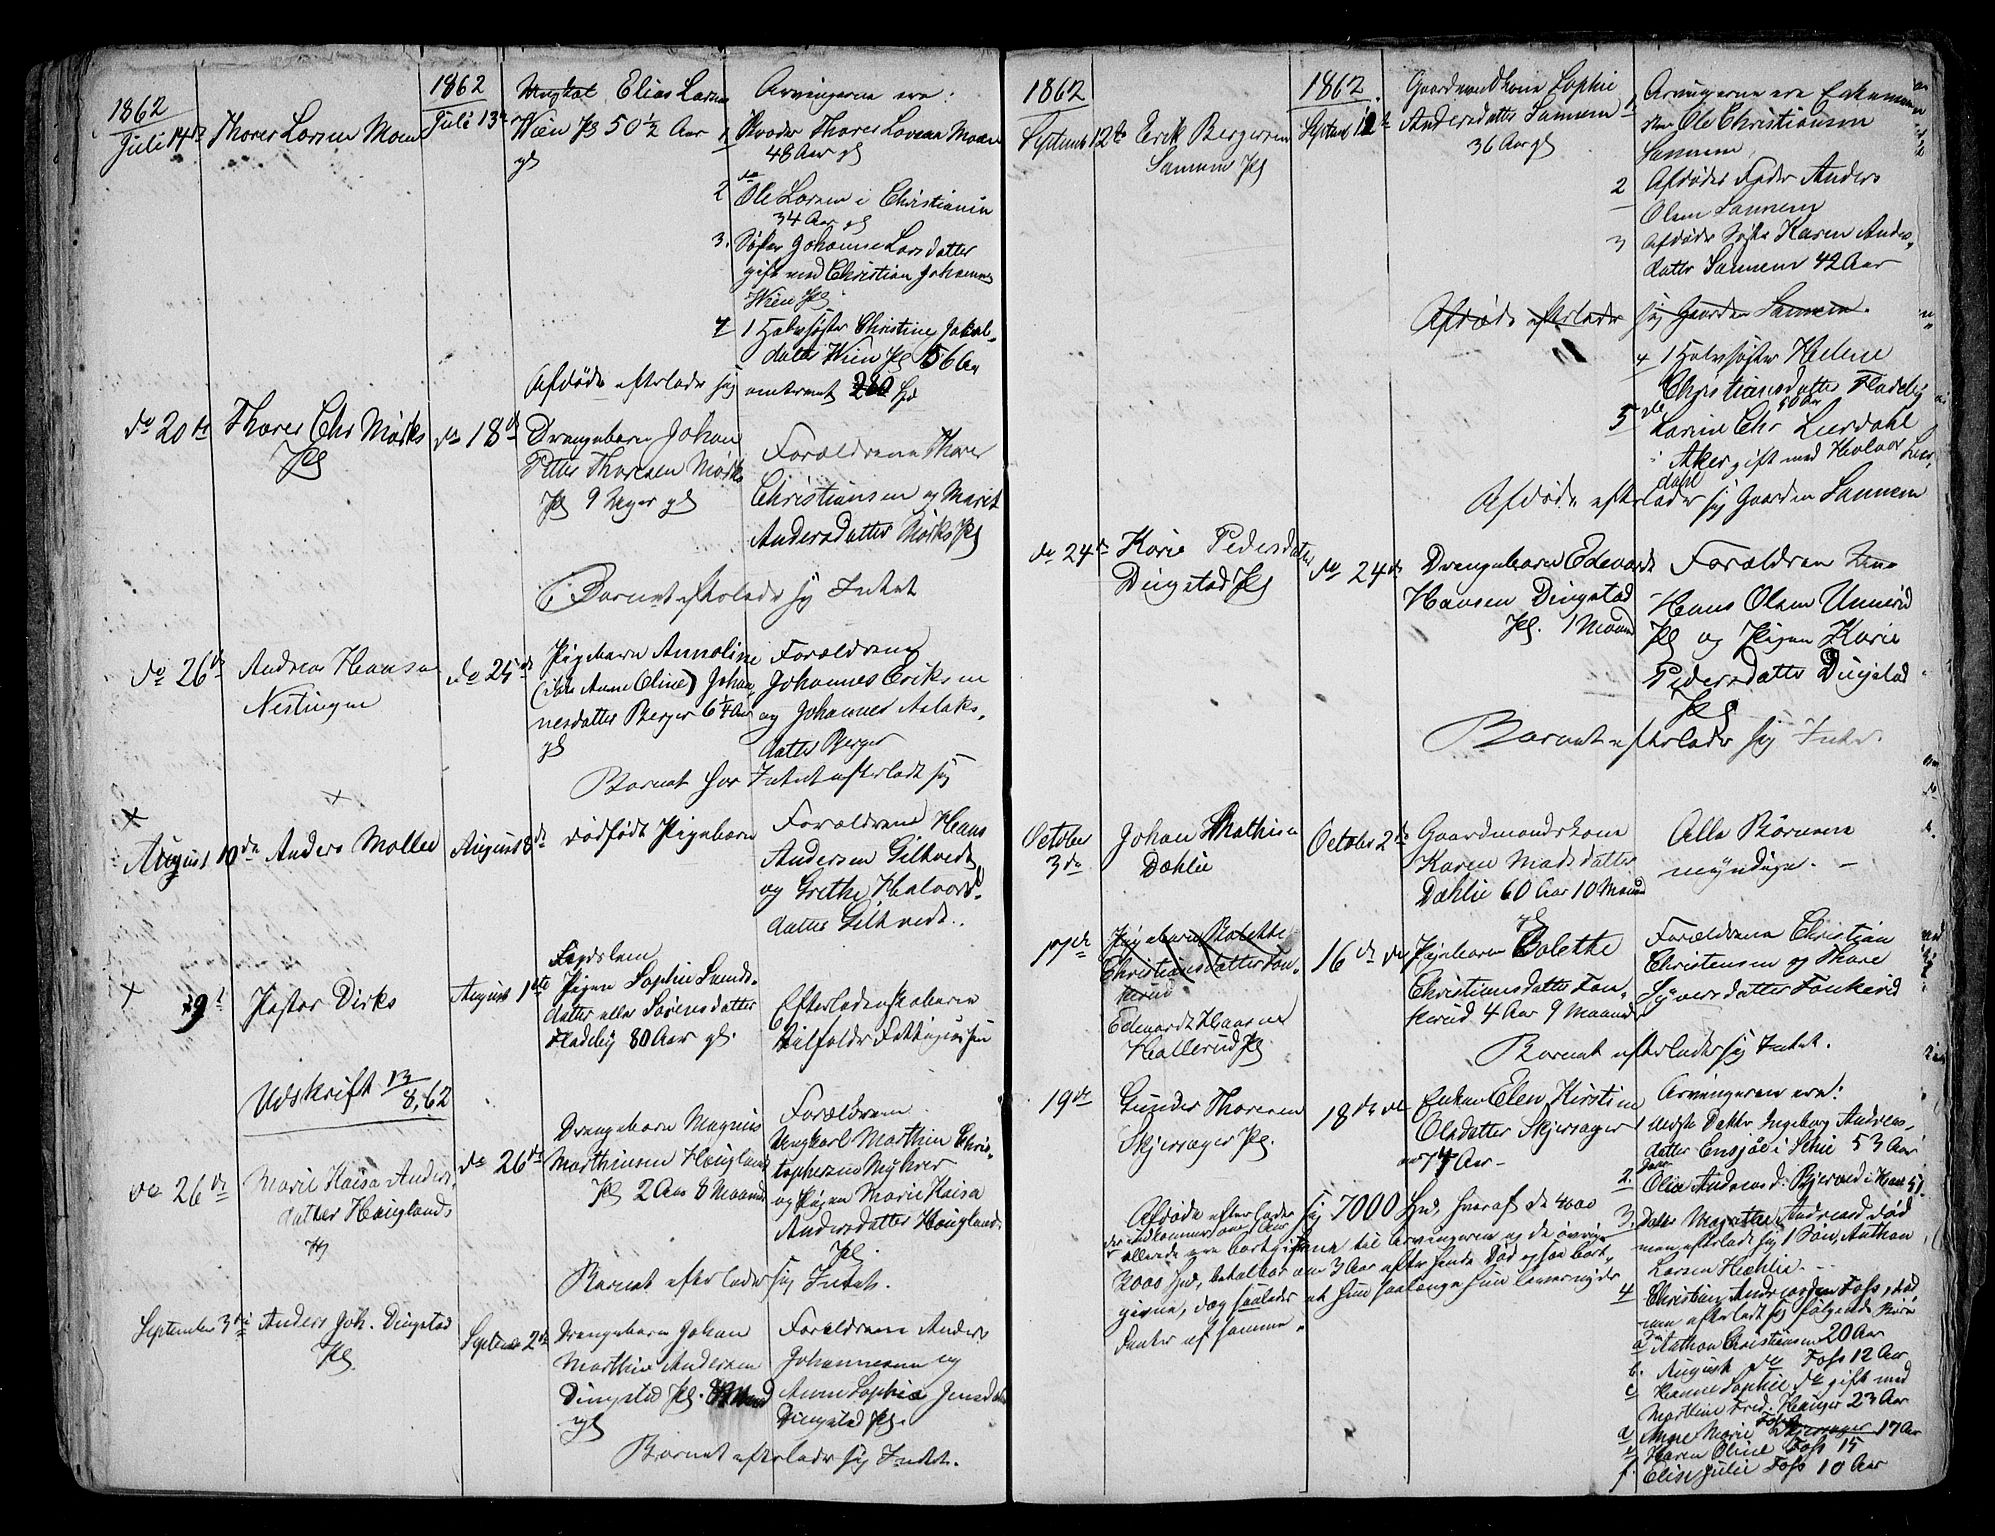 1862
Juli 14de Thorer Larsen Moen
1862
Juli 13de
Ungkal Elias Larsen
Wien Pl 50 1/2 Aar
gl
Arvingerne ere:
1 Broder Thorer Larsen Moen
48 Aar gl
2 do Ole Larsen i Christiania
34 Aar gl
3. Søster Johanne Larsdatter
gift med Christian Johannes
Wien Pl.
4 1 Halvsøster Christine Jakobs
datter Wien Pl 56 Aar
Afdøde efterlader sig omtrent 280 Spd
do 20de Thorer Chr Mørk
Pl
do 18de
Drengebarn Johan
Peter Thorersen Mørk
Pl 9 Uger gl
Forældrene Thorer
Christiansen og Marit
Andersdatter Mørk Pl
Barnet efterlader sig Intet
do 26de Andreas Hansen
Nestingen
do 25de
Pigebarn Annoline
(ikke Anne Oline) Johan
nesdatter Berger 6 1/4 Aar
gl
Forældrene
Johannes Eriksen
og Johanne Aslaks
datter Berger
Barnet har Intet efterladt sig
August 10de Anders Mollee
August 8de
dødfødt Pigebarn
Forældrene Hans
Andersen Gilhvedt
og Grethe Halvors
datter Gilhvedt.
9de Pastor Dirks
August 1ste
Lægdslem
Pigen Sophie Lunds
datter eller Sørensdatter
Fladeby 80 Aar gl.
Efterladenskaberne
tilfalder Fattigvæsen
Udskrift 13/8,62
do 26de Marie Kaisa Anders
datter Høugland
Pl
do 26de
Drengebarn Magnus
Marthinsen Høugland
Pl 2 Aar 8 Maaned
Forældrene
Ungkarl Marthin Chris
tophersen Myhrer
og Pigen Marie Kaisa
Andersdatter Høugland
Pl.
Barnet efterlader sig Intet.
September 3die Anders Joh. Dingstad
Pl.
September 2de
Drengebarn Johan
Marthin Andersen
Dingstad Pl.
gl
Forældrene Anders
Johannesen og
Anne Sophie Jensdatter
Dingstad Pl.
Barnet efterlader sig Intet.
1862
September 12te Erik Bergersen
Sannem Pl
1862
September 11te
Gaardmandskone Sophie
Andersdatter Sannem
36 Aar gl
1 Arvingerne ere Enkemanden
Ole Christiansen
Sannem
2 Afdødes Fader Anders
Olsen Sannem
3 Afdødes Søster Karen Anders
datter Sannem 42 Aar
Afdøde efterlader sig Gaarden Sannem.
4 1 Halvsøster Helene
Christiansdatter Fladeby
50 Aar
5 do Karine Chr Lierdahl
i Aker gift med Halvor Lier
dahl
Afdøde efterlader sig Gaarden Sannem
do 24de Karie Pedersdatter
Dingstad Pl
do 24de
Drengebarn Edevardt
Hansen Dingstad
Pl. 1 Maaned
Forældrene
Hans Olsen Unnerud
Pl og Pigen Karie
Pedersdatter Dingstad
Pl
Barnet efterlader sig Intet.
October
3de
Johan Mathisen
Dæhlie
October 2de
Gaardmandskone
Karen Madsdatter
Dæhlie 60 Aar 10 Maaned
gl
Alle Børnene
myndige. –
17de
Pigebarn Bolette
Christiansdatter Fon
kerud
Edevardt Haarsen
Hallerud Pl
16de do
Pigebarn Bolethe
Christiansdatter Fon
kerud 4 Aar 9 Maaned
Forældrene Christian
Christensen og Thore
Syversdatter Fonkerud
Barnet efterlader sig Intet.
19de
Gunder Thoresen
Skjersager Pl.
18de do
Enken Elen Kirstine
Olsdatter Skjersager
74 Aar –
Arvingerne ere:
1 Ældste Datter Ingeborg Andreas
datter Ensjøe i Schie 53 Aar
2. Oline Andreasd. Bjerved
3. Datter Marthe Andreasd død
men efterladt sig 1 Søn, Anthon
Larsen Hæhlie
4 Christian Andreassen Foss, død
men efterladt sig følgende Børn
a Anthon Christiansen 20 Aar
b. August do Foss 12 Aar
c Hanne Sophie do gift med
Marthin Fred. Hauger 23 Aar
d Anne Marie Foss Skjersager 17 Aar
e Karen Oline Foss 15
f. Elise Julie Foss 10 Aar
Afdøde efterlader sig 7000 Spd, hvoraf de 4000
allerede ere bortgivne til Arvingerne og de øvrige
3000 Spd, betalbar om 3 Aar efter hendes Død ogsaa bort
givne, dog saaledes at hun saalænge hun lever nyder
Renter af samme.